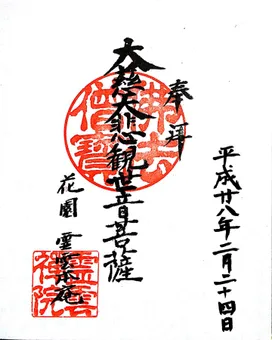 平成廿八年二月二十四日
奉拝
大慈大悲観世音菩薩
佛法僧寶
花園 霊雲庵
霊雲禅院